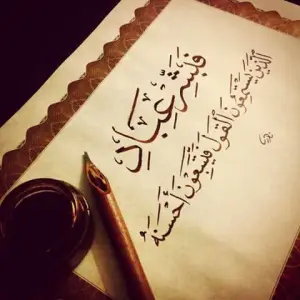 فَبَشِّرْ عِبَادِ
الَّذِينَ يَسْتَمِعُونَ الْقَوْلَ فَيَتَّبِعُونَ أَحْسَنَهُ